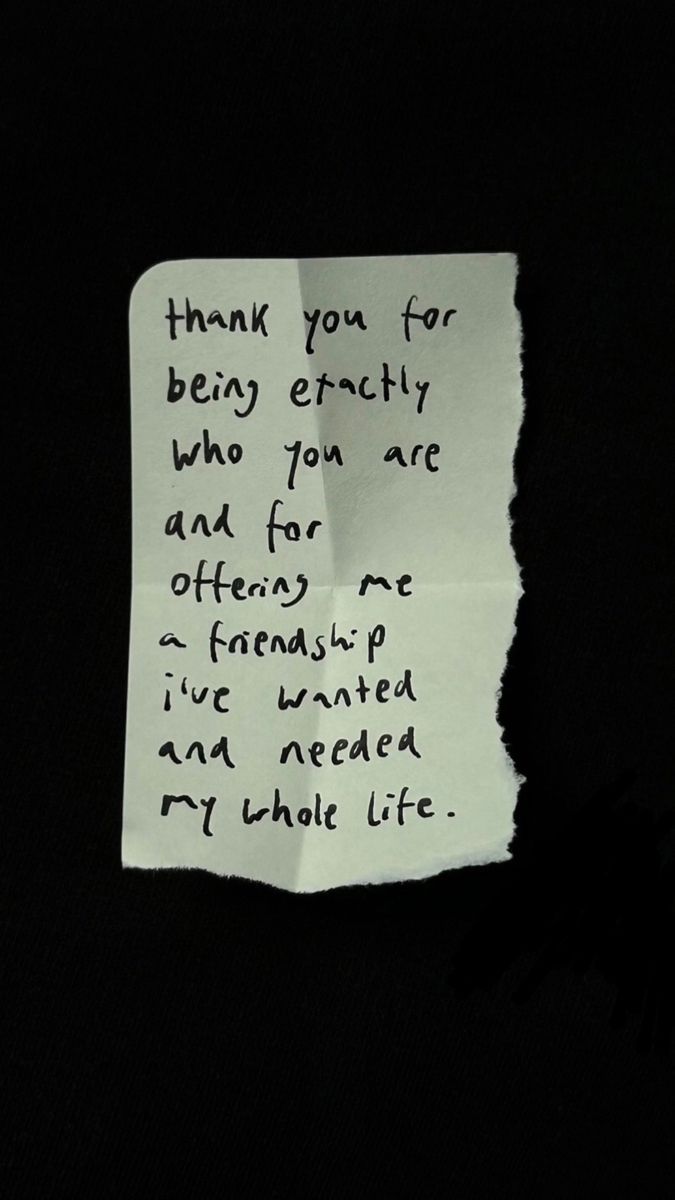 thank you for
being exactly
who you are
and for
offering me
a friendship
i've wanted
and needed
my whole life.